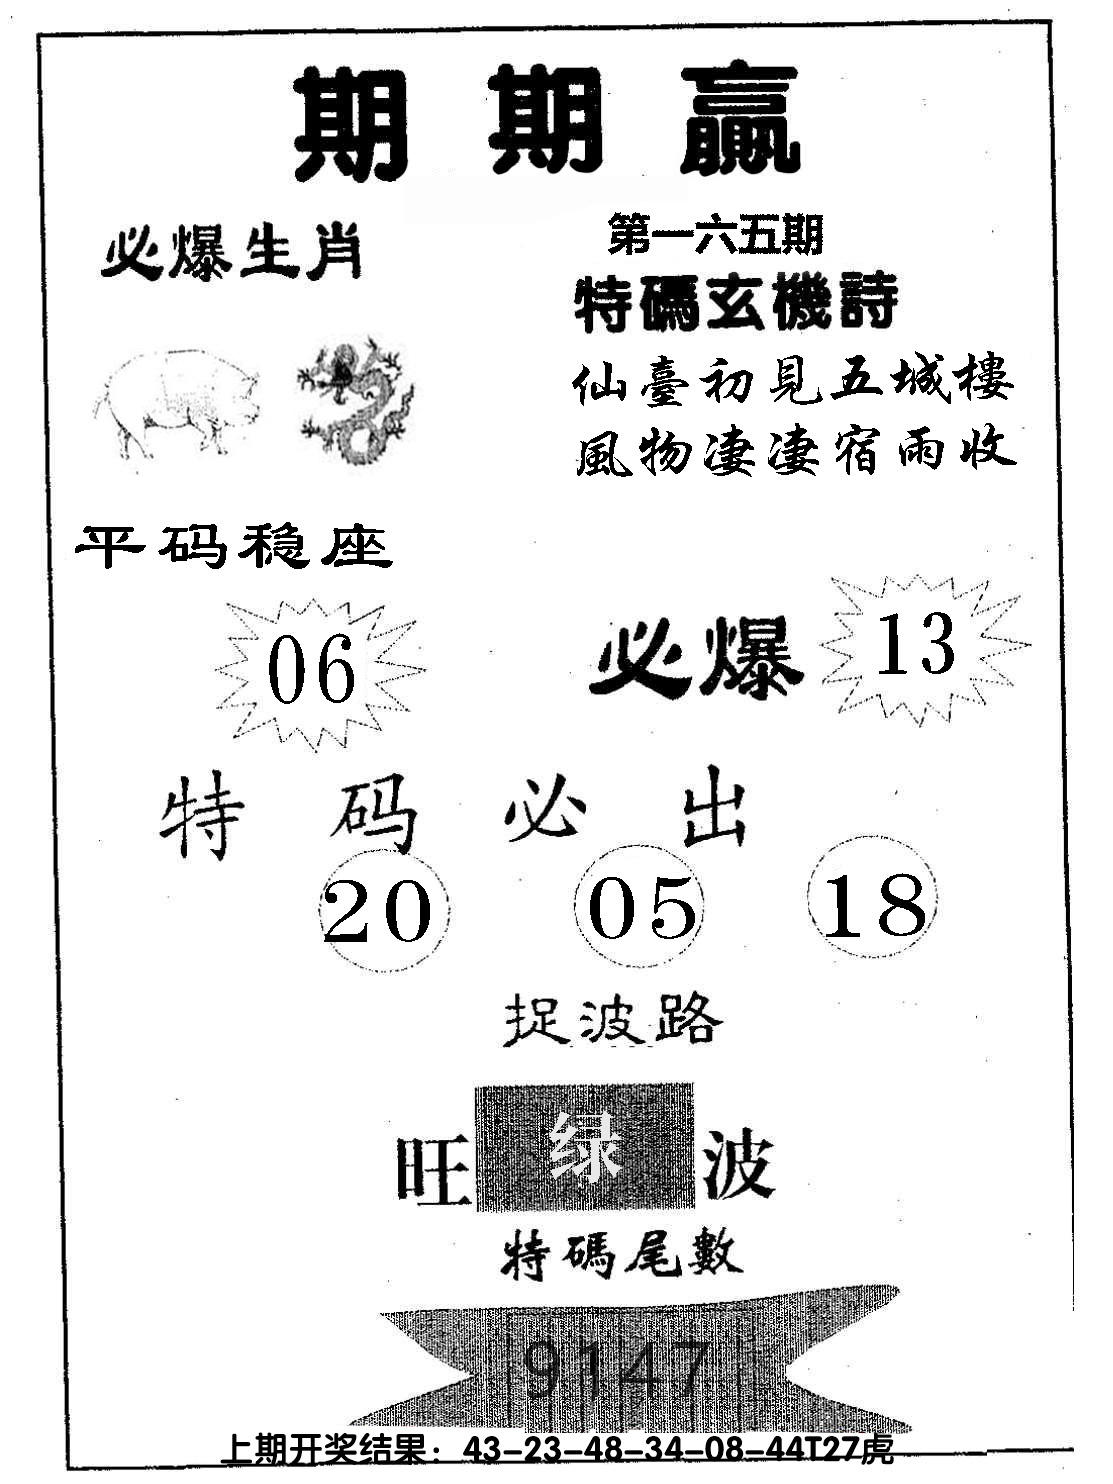 期期贏
必爆生肖
第一六五期
特碼玄機詩
仙臺初見五城樓
風物淒淒宿雨收
平码稳座
06
必爆 13
特码必出
20 05 18
捉波路
旺 绿 波
特碼尾數
9147
上期开奖结果：43-23-48-34-08-44T27虎